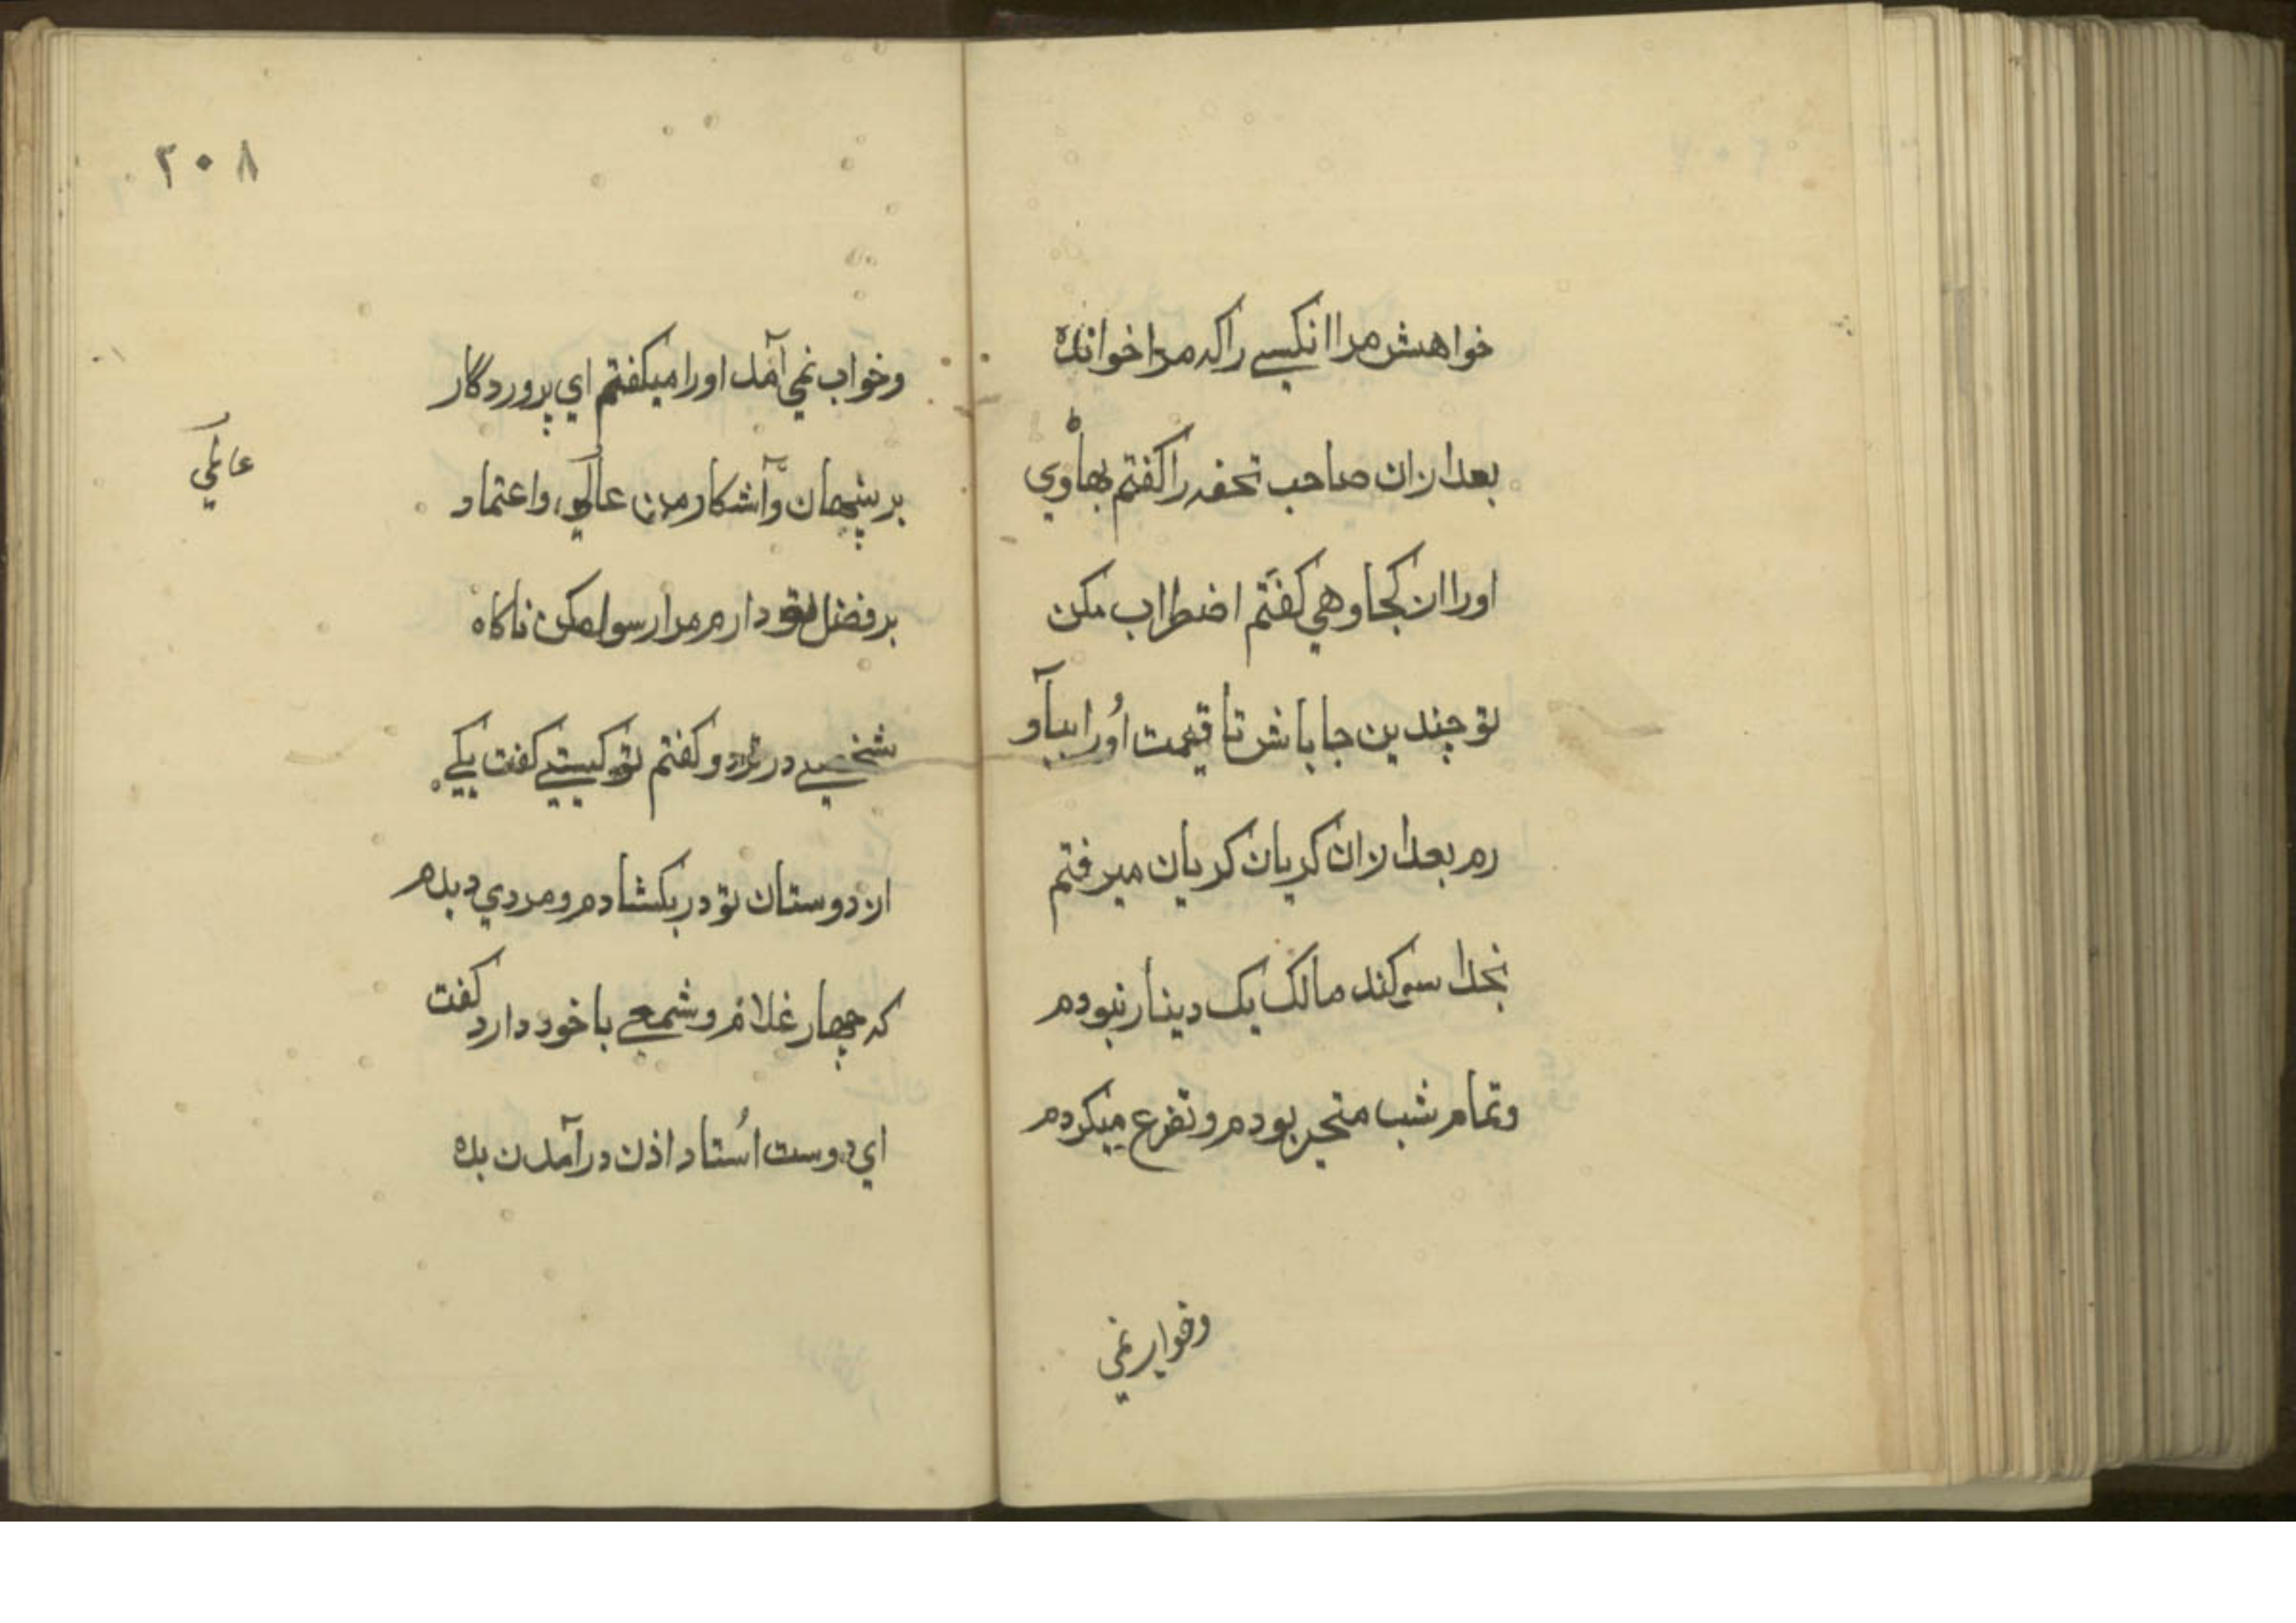 خواهش مرا انکسے راکه مرا خوانده
بعد ازان صاحب تحفه را کفتم بهاوي
اورا از کجا وهي کفتم اضطراب مکن
تو چندین جا باش تا قیمت اورا بیاو
رم بعد ازان کریان کریان میرفتم
بخدا سوکند مالک یک دینار نبودم
وتمام شب متحیر بودم وتضرع میکردم
وخواب نمي
٢٠٨
وخواب نمي آمد اورا میکفتم اي پروردکار
بر پنهان وآشکار من عالمي واعتماد
عالمي
بر فضل تو دارم مرا رسوا مکن ناکاه
شخصے در زد و کفتم تو کیستے کفت یکے
از دوستان تو در بکشادم ومردي دیدم
که چهار غلام وشمعے با خود دارد کفت
اي دوست اُستاد اذن درآمدن بده